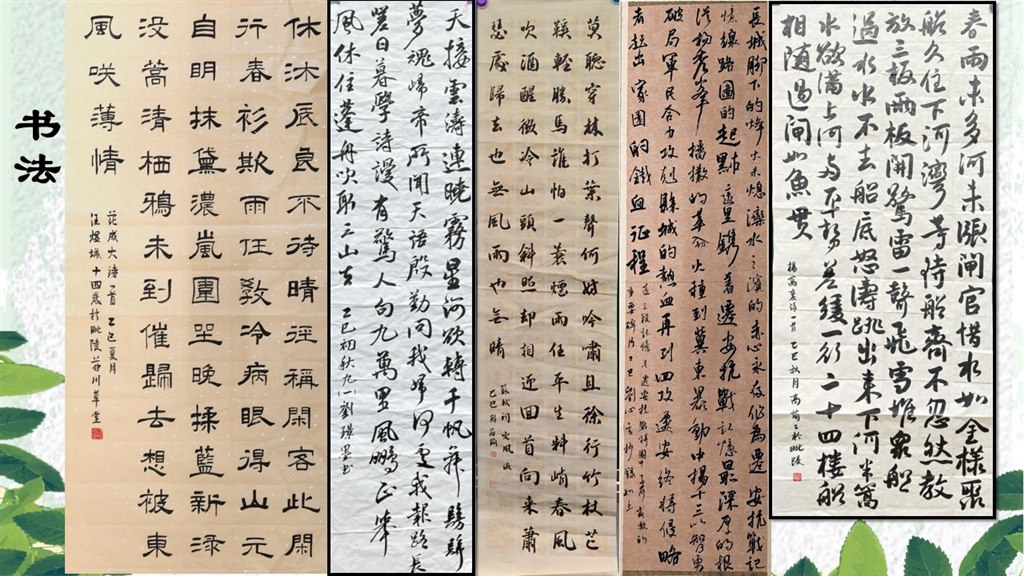 书法
休沐辰良不待晴徑稱閑客此閑
行春衫欺雨任教冷病眼得山元
自明抹黛濃嵐圍坐晚揉藍新淥
没蒿清栖鴉未到催歸去想被東
風咲薄情
范成大诗一首 乙巳夏月
汪煜城十四歲於毗陵荷川草堂
天接雲濤連曉霧星河欲轉千帆舞髣髴
夢魂歸帝所聞天語殷勤問我歸何處我報路長
嗟日暮學詩謾有驚人句九萬里風鵬正舉
風休住蓬舟吹取三山去 乙巳初秋
莫聽穿林打葉聲何妨吟嘯且徐行竹杖芒
鞋輕勝馬誰怕一蓑煙雨任平生料峭春風
吹酒醒微冷山頭斜照却相迎回首向來蕭
瑟處歸去也無風雨也無晴
蘇軾詞定風波
長城脚下的烽火未熄灤水之濱的赤心永存作為遷安抗戰記
憶線路圖的起點這里鐫着遷安抗戰記憶最深厚的根
從楊秀峰播撒的革命火種到冀東暴動中揚十三以智勇
破局軍民合力攻剋縣城的熱血再到四攻遷安終將侵略
者趕出家園的鐵血征程
春雨未多河未漲閘官惜水如金樣聚
船久住下河灣等待船齊不忽然教
放三板兩板開驚雷一聲飛雪堆衆船
過水水不去船底怒濤跳出來下河半篙
水欲滿上河与下平势差緩一行二十四樓船
相随過閘如魚貫
楊萬里詩一首 乙巳秋月